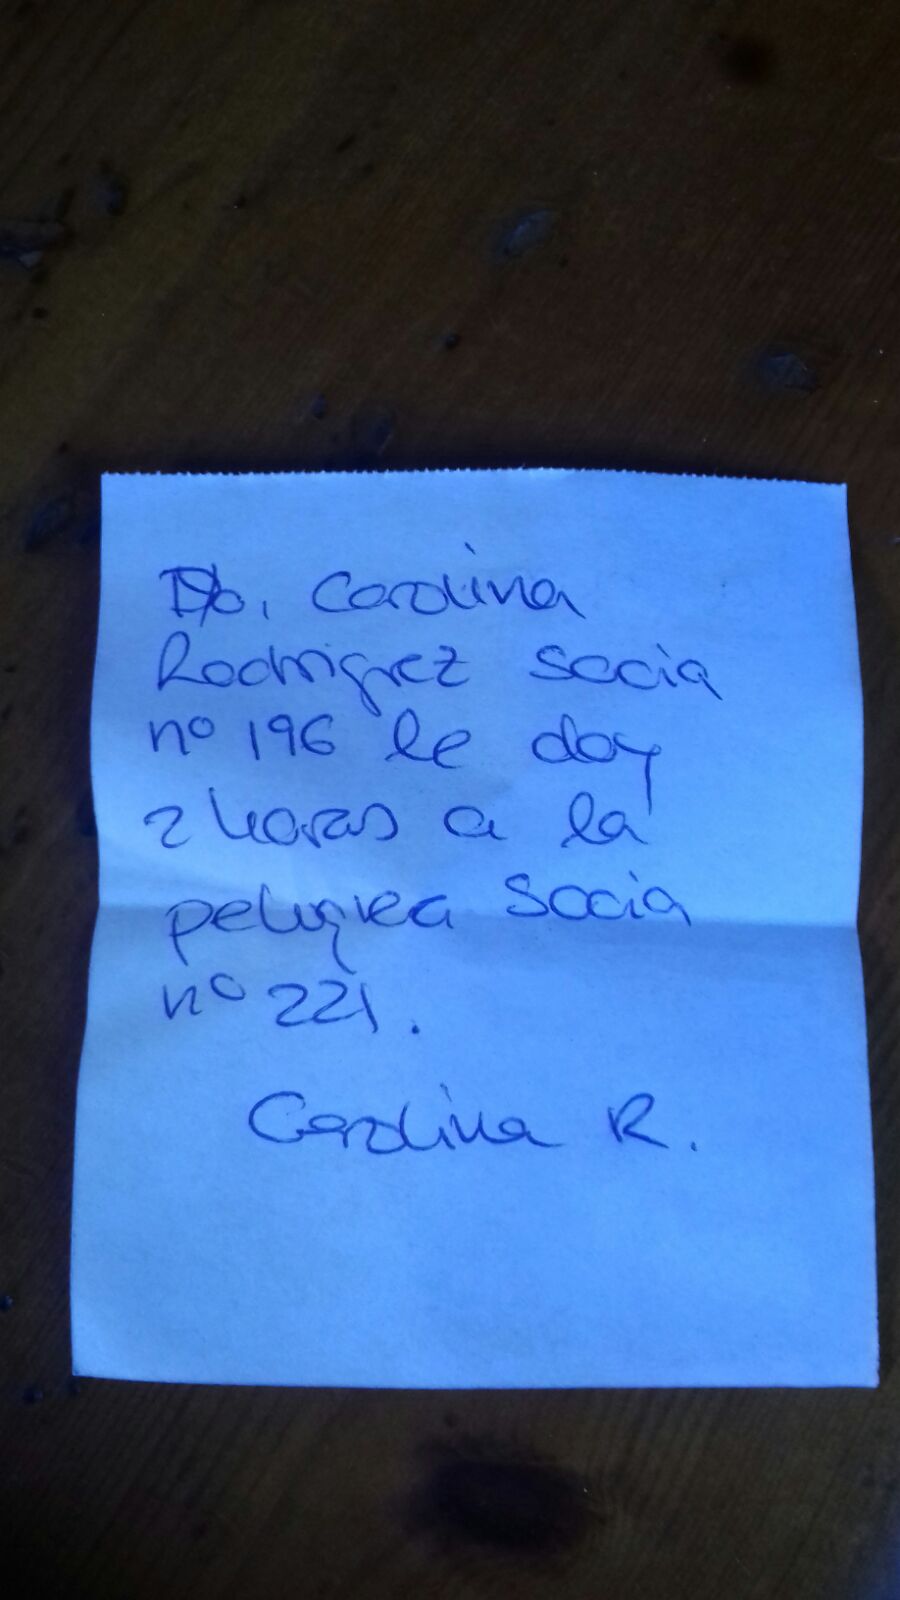 Yo, Carolina
Rodriguez socia
nº 196 le doy
2 horas a la
peluquera socia
nº 221.
Carolina R.